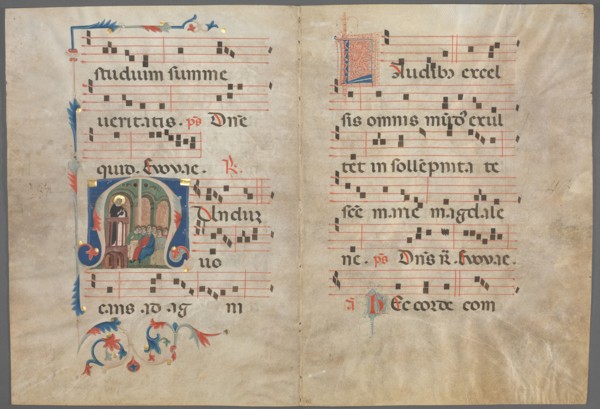 studium summe
ueritatis. ps Dn̄e
quid. Euouae. R.
M unduʒ
uo
cans ad ag ni
L Audibꝫ excel
sis omnis mūdꝰ exul
tet in sollēpnita te
scē marie magdale
ne. ps Dn̄s R̄. Euouae.
a H Ec corde com